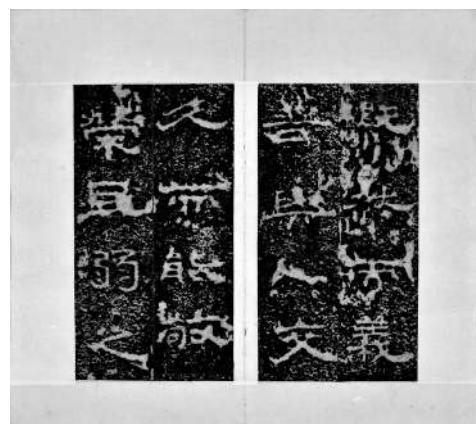 慨然而義
善與人交
久而能敬
榮且溺之